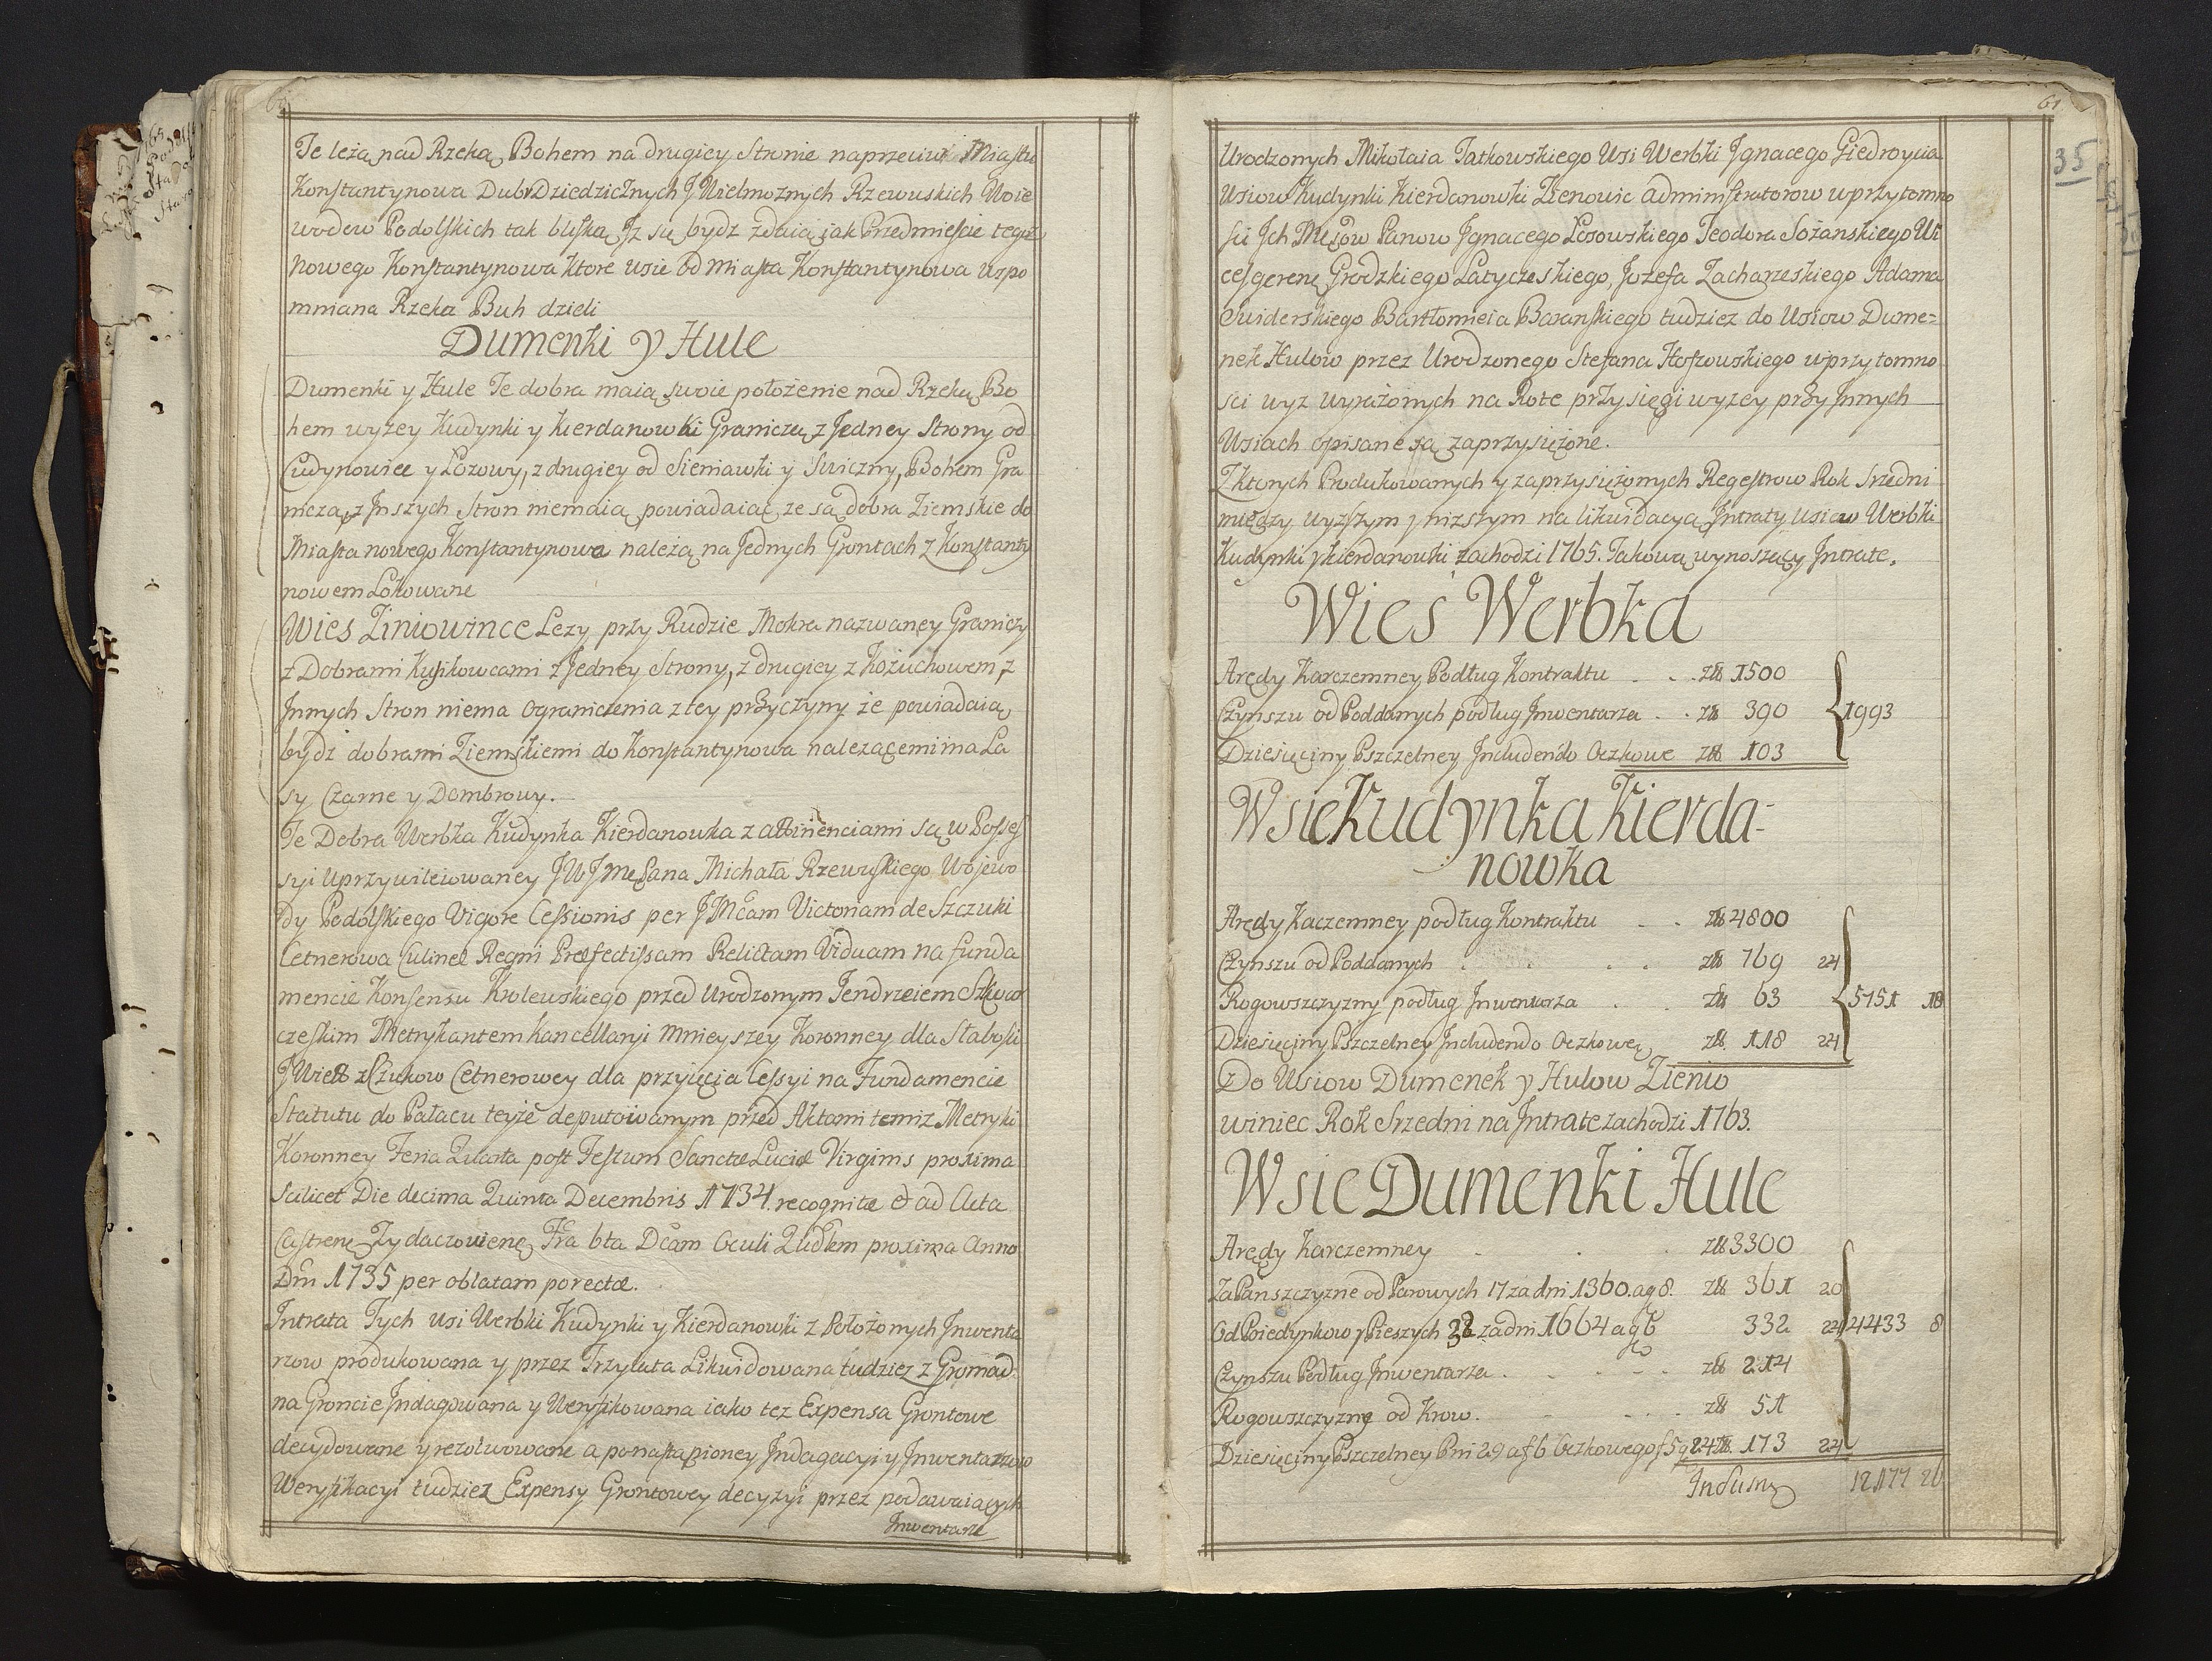 Te leżą nad Rzeką Bohem na drugiey Stronie naprzeciw Miastu
Konstantynowa Dubr Dziedzicznych J Wielmoznych Rzewuskich Woie
wodow Podolskich tak bliska Jz się bydz zdaią jak Przedmieście tegoż
nowego Konstantynowa ktore wsie od Miasta Konstantynowa wspo
mniana Rzeka Buh dzieli
Dumenki y Hule
Dumenki y Hule Te dobra maią swoie położenie nad Rzeką Bo
hem wyzey Kudynki y Kierdanowki Graniczą z Jedney Strony od
Cudynowiec y Lozowy, z drugiey od Sieniawki y Swiczny, Bohem Gra
niczą, z Jnszych Stron niemaią, powiadaiąc ze są dobra Ziemskie do
Miasta nowego Konstantynowa należą na Jednych Grontach z Konstanty
nowem Lokowane
Wies Ziniowince Lezy przy Rudzie Mokra nazwaney Graniczy
z Dobrami Kusikowcami z Jedney Strony, z drugiey z Kożuchowem, z
Jnnych Stron niema ograniczenia z tey przyczyny że powiadaią
bydz dobrami Ziemskiemi do Konstantynowa nalezącemi ina La
sy Czarne y Dombrowy.
Te Dobra Werbka Kudynka Kierdanowka z attinenciami są w Posses
syi Uprzywileiowaney JW Jme Pana Michała Rzewuskiego Wojewo
dy Podolskiego Vigore Cessionis per J Mcam Victoriam de Szczuki
Cetnerowa Culinæ Regni Præfectissam Relictam Viduam na funda
mencie Konsensu Krolewskiego przed Urodzonym Jendrzeiem
czeskim Metrykantem Kancellaryi mnieyszey Koronney dla Słabości
J Wiel z Czukow Cetnerowey dla przyięcia Cessyi na Fundamencie
Statutu do Pałacu teyże deputowanym przed Aktami temiz Metryki
Koronney Feria Quarta post Festum Sanctæ Luciæ Virginis proxima
Scilicet Die decima Quinta Decembris 1734. recognitæ & ad Acta
Castren Zydaczowien Fra 6ta Dcam Oculi Qudlm proxima Anno
Dni 1735 per oblatam porectæ.
Intrata Tych wsi Werbki Kudynki y Kierdanowki z Położonych Jnwenta
rzow produkowana y przez Trzylata Likwidowana tudziez z Gromad
na Groncie Jndagowana y Weryfikowana iako tez Expensa Grontowe
decydowane y rezolwowane a ponastąpioney Jndagacyi y Jnwentarzow
Weryfikacyi tudziez Expensy Grontowey decyzyi przez podawaiących
Jnwentarze
61
35
Urodzonych Mikołaia Tatkowskiego Wsi Werbki Jgnacego Giedroycia
Wsiow Kudynki Kierdanowki Zienowic administratorow w przytomno
ści Jch Mciow Panow Jgnacego Losowskiego Teodora Sożanskiego Wi
cesgeren Grodzkiego Latyczeskiego, Jozefa Zacharzeskiego Adama
Swiderskiego Bartłomieia Baranskiego tudziez do Wsiow Dume-
nek Hulow przez Urodzonego Stefana w przytomno
sci wyz wyrażonych na Rote przysięgi wyzey przy Jnnych
Wsiach opisane są zaprzysiężone.
Z ktorych Produkowanych y zaprzysiężonych Regestrow Rok Srzedni
między wyzszym y nizszym na likwidacyą Jntraty wsiow Werbki
Kudynki y Kierdanowki zachodzi 1765. Takową wynoszący Jntrate.
Wieś Werbka
Arędy Karczemney Podług Kontraktu . . . zł 1500
Czynszu od Poddanych podług Jnwentarza . . zł 390 1993
Dziesięciny Pszczelney Jncludendo Oczkowe zł 103
Wsie Kudynka Kierda-
nowka
Arędy Kaczemney podług Kontraktu . . zł 4800
Czynszu od Poddanych . . . . zł 769 24
Rogowszczyzny podług Jnwentarza . . zł 63 5751 18
Dziesięciny Pszczelney Jncludendo Oczkowe zł. 118 24
Do Wsiow Dumenek y Hulow Zienio
winiec Rok Srzedni na Jntrate zachodzi 1763.
Wsie Dumenki Hule
Arędy Karczemney . . . zł 3300
Za Panszczyzne od Parowych 17 za dni 1360. a g 8. zł 361 20
Od Poiedynkow y Pieszych 32 za dni 1664 a g 6 332 24 4433 8
Czynszu Podług Jnwentarza . . . . . zł 214
Rogowszczyzny od Krow. . . . . zł 51
Dziesięciny Pszczelney Pni 29 a f 6 Oczkowego f 5 g 24 zł 173 24
In Summa 12177 26